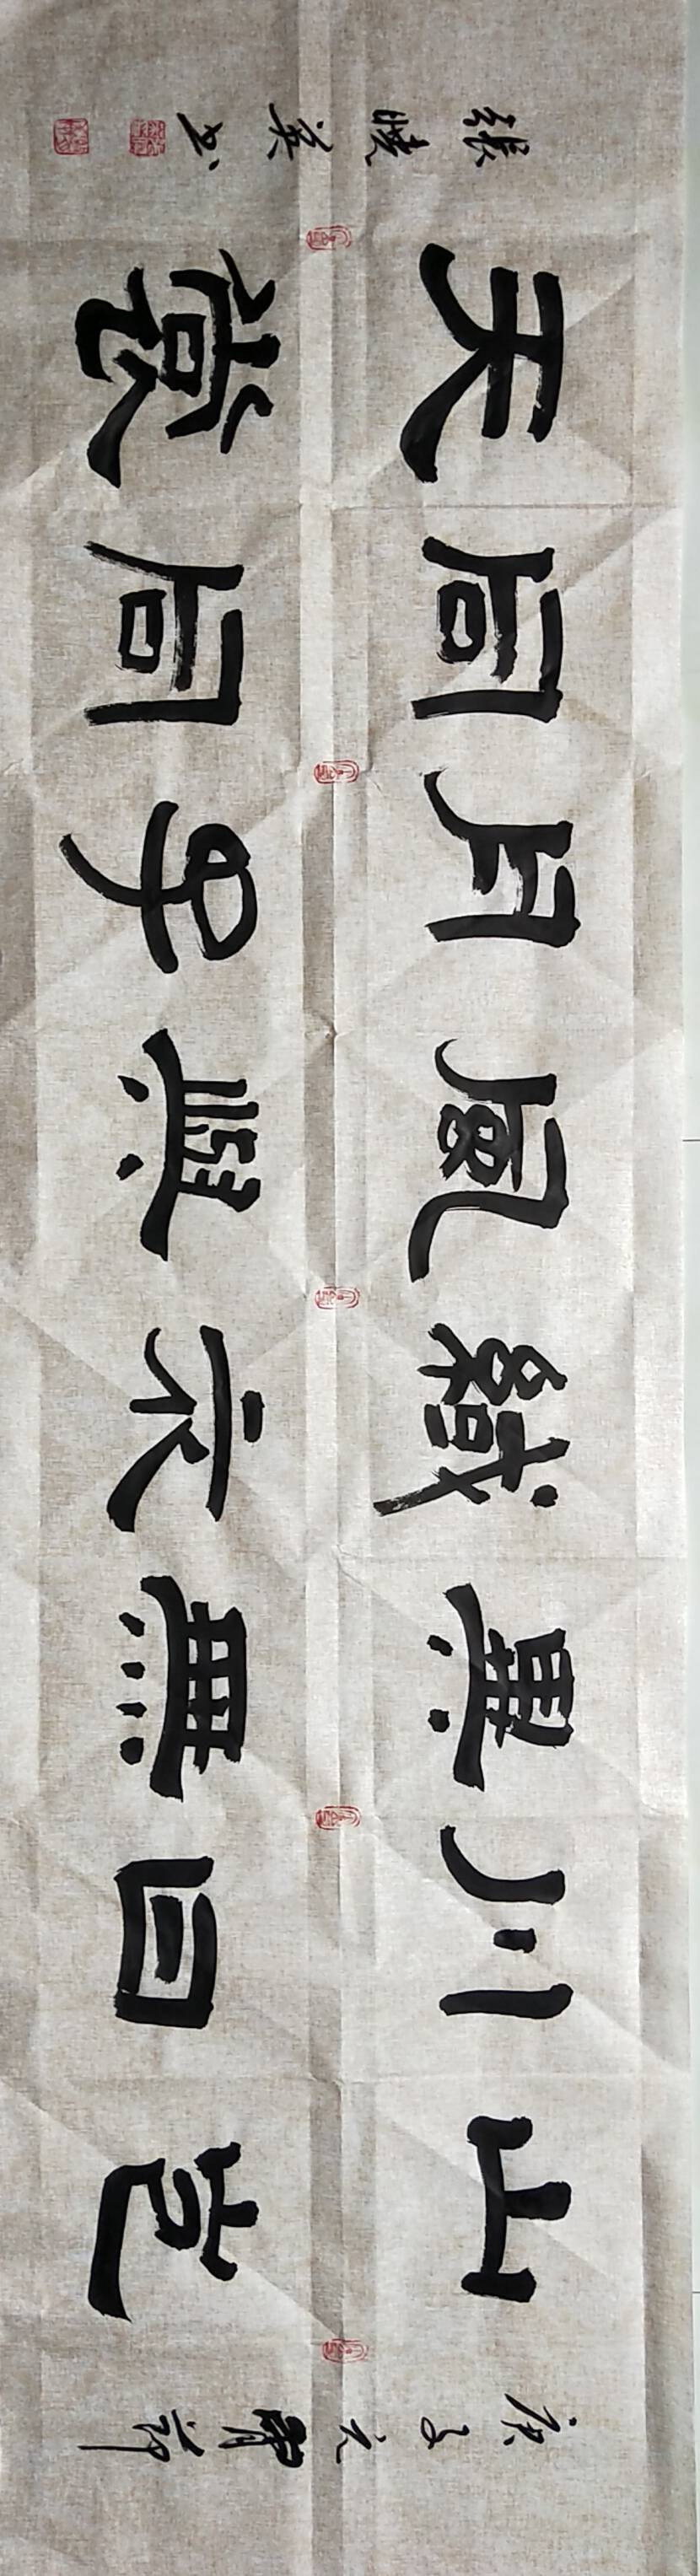 庚子元宵節
山川異緎風月同天
岂曰無衣與子同裳
張曉英书